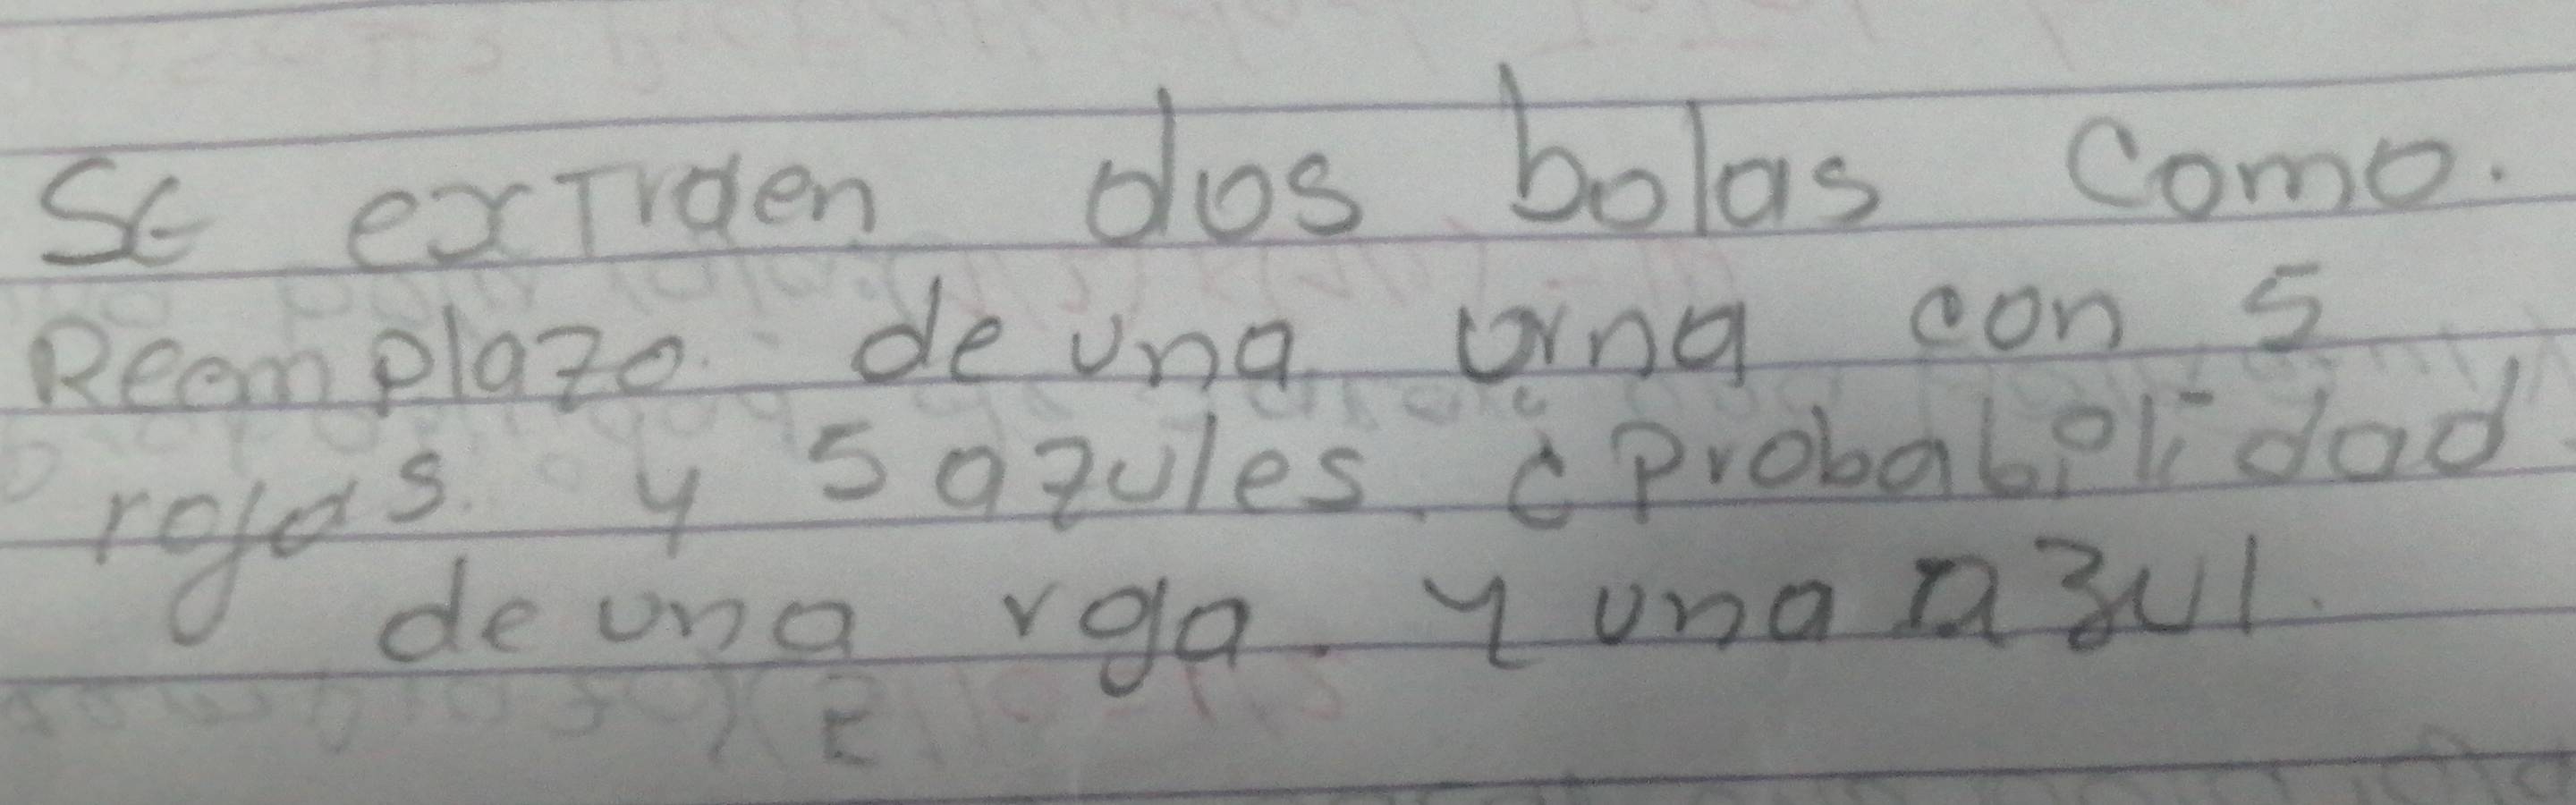 Se extraen dos bolas como.
Reemplazo de una urna con 5
rojas. y 5 azules. ¿Probabilidad
de una roja. y una azul.